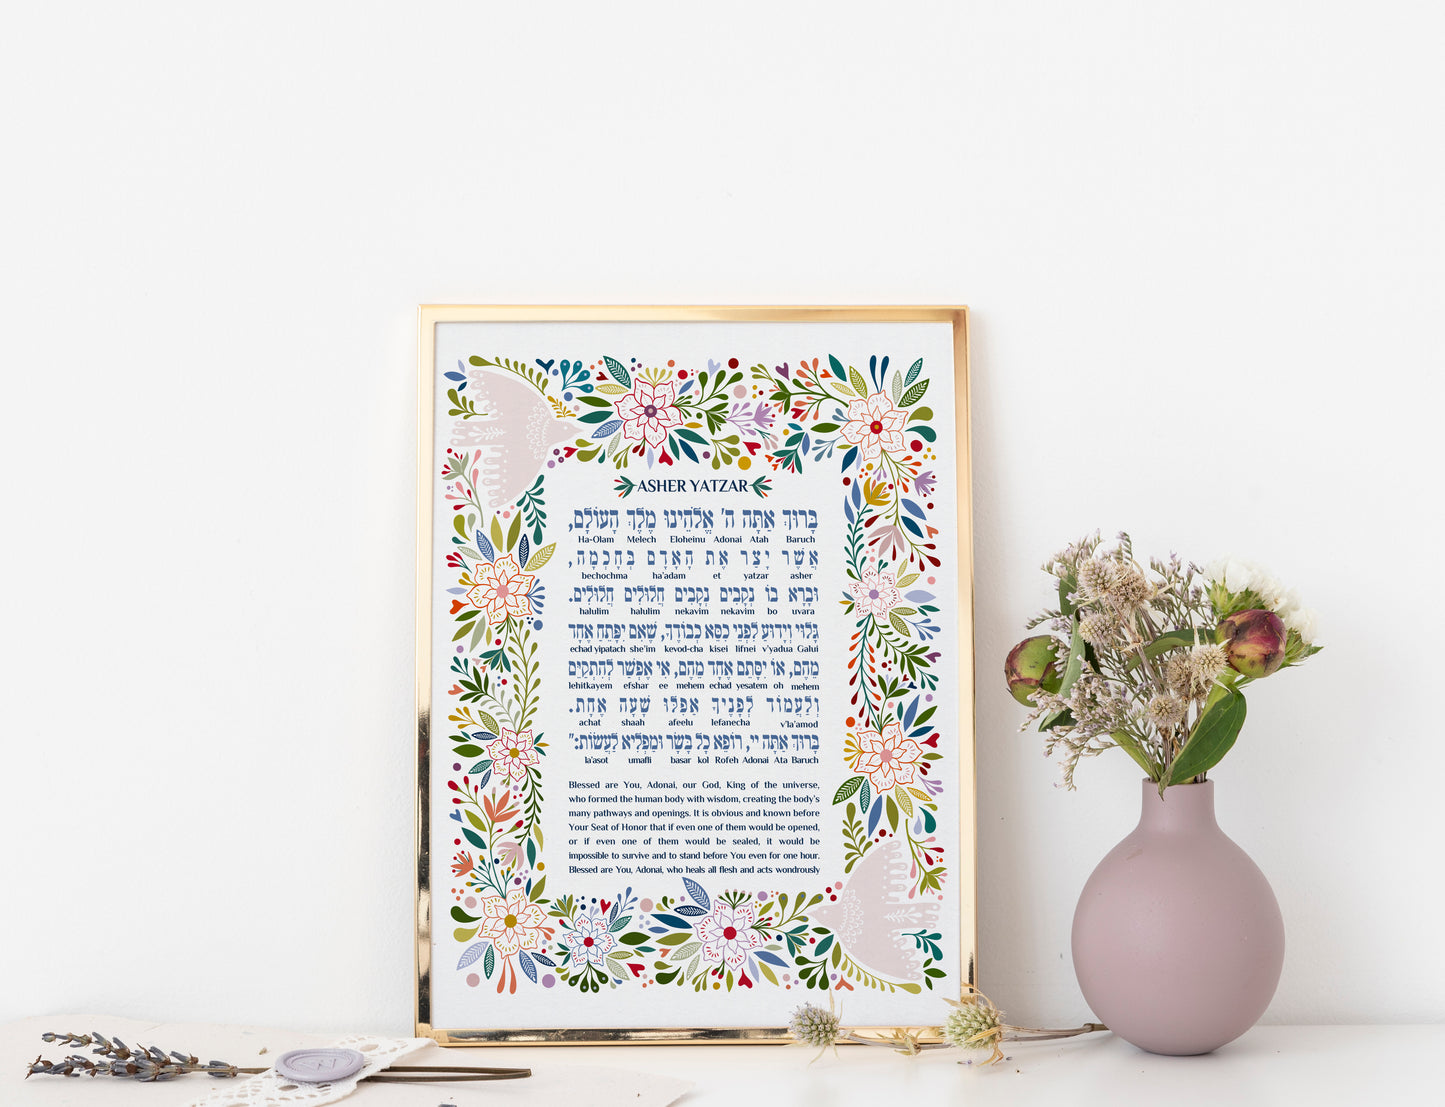 ASHER YATZAR
בָּרוּךְ אַתָּה ה' אֱלֹהֵינוּ מֶלֶךְ הָעוֹלָם,
Ha-Olam Melech Eloheinu Adonai Atah Baruch
אֲשֶׁר יָצַר אֶת הָאָדָם בְּחָכְמָה,
bechochma ha'adam et yatzar asher
וּבָרָא בוֹ נְקָבִים נְקָבִים חֲלוּלִים חֲלוּלִים.
halulim halulim nekavim nekavim bo uvara
גָּלוּי וְיָדוּעַ לִפְנֵי כִסֵּא כְבוֹדֶךָ, שֶׁאִם יִפָּתֵחַ אֶחָד
echad yipatach she'im kevod-cha kisei lifnei v'yadua Galui
מֵהֶם, אוֹ יִסָּתֵם אֶחָד מֵהֶם, אִי אֶפְשַׁר לְהִתְקַיֵּם
lehitkayem efshar ee mehem echad yesatem oh mehem
וְלַעֲמוֹד לְפָנֶיךָ אֲפִלּוּ שָׁעָה אֶחָת.
achat shaah afeelu lefanecha v'la'amod
בָּרוּךְ אַתָּה יי, רוֹפֵא כָל בָּשָׂר וּמַפְלִיא לַעֲשׂוֹת:"
la'asot umafli basar kol Rofeh Adonai Ata Baruch
Blessed are You, Adonai, our God, King of the universe,
who formed the human body with wisdom, creating the body's
many pathways and openings. It is obvious and known before
Your Seat of Honor that if even one of them would be opened,
or if even one of them would be sealed, it would be
impossible to survive and to stand before You even for one hour.
Blessed are You, Adonai, who heals all flesh and acts wondrously